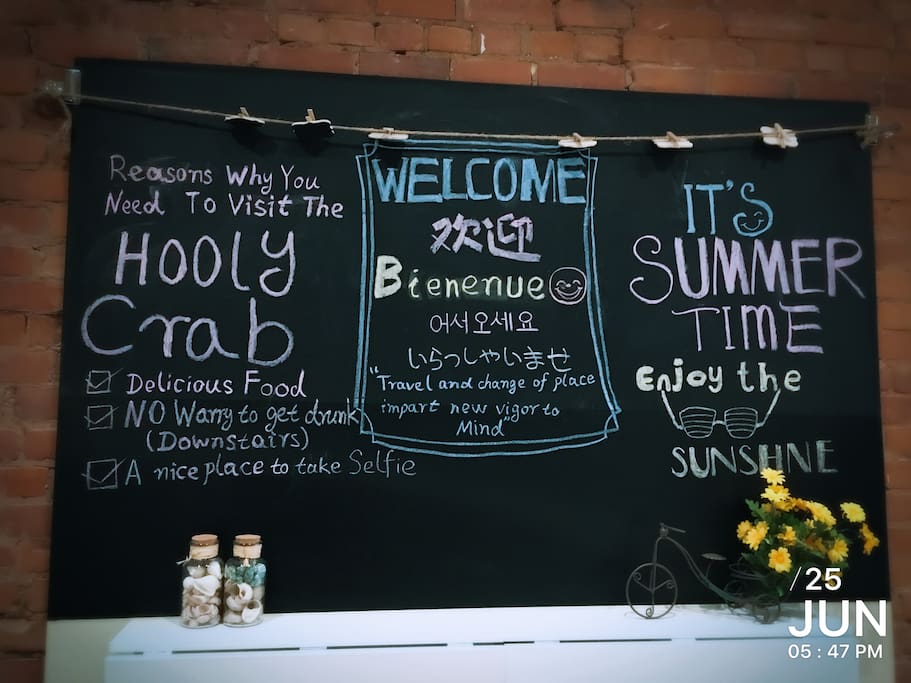 Reasons Why You
Need To Visit The
HOOLY
Crab
Delicious Food
NO Warry to get drunk
(Downstairs)
A nice place to take Selfie
WELCOME
欢迎
Bienenue
어서오세요
いらっしゃいませ
"Travel and change of place
impart new vigor to
Mind"
IT'S
SUMMER
TIME
Enjoy the
SUNSHNE
/25
JUN
05:47 PM